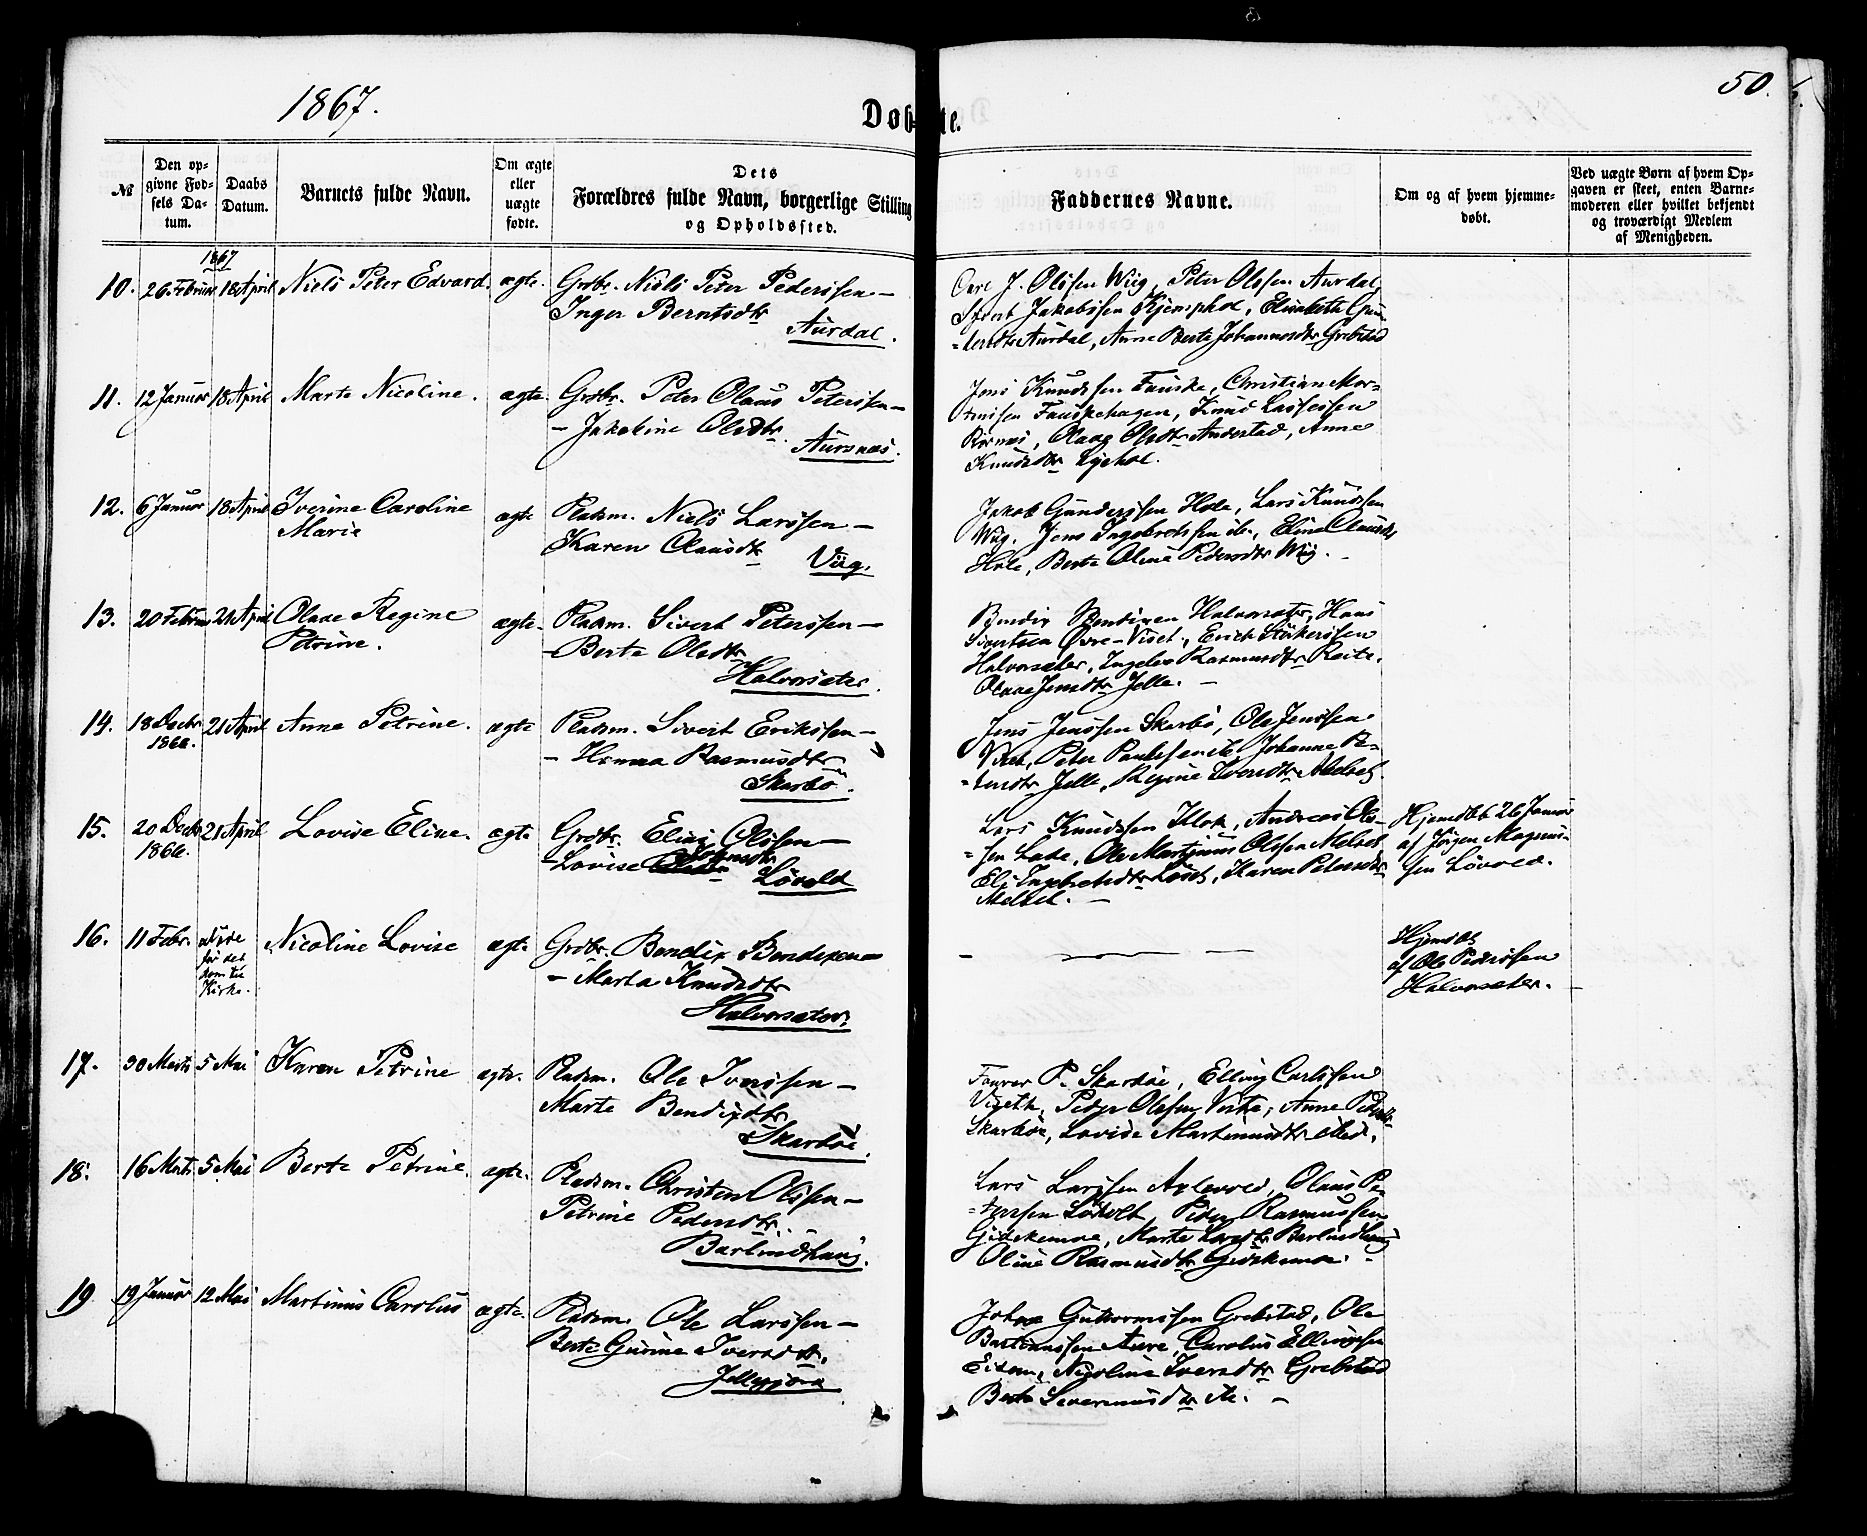 1867.
Døbte.
50.
No
Den opgivne Fødsels Datum.
Daabs Datum.
Barnets fulde Navn.
Om ægte eller uægte fødte.
Dets Forældres fulde Navn, borgerlige Stilling og Opholdssted.
Faddernes Navne.
Om og af hvem hjemmedøbt.
Ved uægte Børn af hvem Opgaven er skeet, enten Barnemoderen eller hvilket bekjendt og troværdigt Medlem af Menigheden.
1867
10. 26 Februar 18 April Niels Peter Edvard. ægte. Grdbr. Niels Peter Pederssen –
Inger Berntsdtr
Aurdal.
Carl J. Olssen Wiig, Peter Olssen Aurdal,
Sivert Jakobssen Kjemphol, Elisabeth Gun-
=dersdtr Aurdal, Anne Berte Johannesdtr Grebstad
11. 12 Januar 18 April Marte Nicoline. ægte. Grdbr. Peter Olaus Peterssen –
– Jakobine Olsdtr.
Aursnæs.
Jens Knudssen Fauske, Christian Mor-
tenssen Fauskehagen, Knud Lassessen
Olsdtr Anderstad, Anne
Knudsdtr
12. 6 Januar 18 April Iverine Caroline ægte Pladsm. Niels Larssen –
Marie
Karen Olausdtr
Viig.
Jakob Gunderssen Hole, Lars Knudssen
Wiig, Jens Ingebretssen do., Eline Olausdtr
Hole, Berte Oline Pedersdtr Wiig. –
13. 20 Februar 21 April Olave Regine ægte. Pladsm. Sivert Peterssen –
Petrine.
– Berte Olsdtr
Halvorsæter.
Bendix Bendixen Halvorsæter, Hans
Sivertsen Øvre-Viset, Erich
Halvorsæter, Rasmusdtr Reite,
Olave Jensdtr Jelle. –
14. 18 Decbr 21 April Anne Petrine. ægte Pladsm. Sivert Erikssen –
1866.
– Hanna Rasmusdtr
Skarbö.
Jens Jenssen Skarbö, Ole Jenssen
Viset, Peter do, Johanne Pe-
=tersdtr Jelle, Regine Melset.
15. 20 Decbr 21 April Lovise Eline. ægte Grdbr. Elias Olssen –
1866.
– Lovise
Løvold
Lars Knudssen Klok, Andreas Ols-
=sen Lade, Ole Martinius Olssen Melset
Eli Ingebretsdtr Karen Petersdtr
Melset. –
Hjemdøbt 26 Januar
af Jörgen Magnus-
sen Lövold.
16. 11 Febr. döde Nicoline Lovise ægte Grdbr. Bendix Bendixen –
før det
kom til
Kirke.
– Marta Knudsdtr
Halvorsæter.
Hjemdøbt
af Ole Pederssen
Halvorsæter. –
17. 30 Marts 5 Mai Karen Petrine ægte. Pladsm. Ole Iverssen –
Marte Bendixdtr
Skarböe.
P. Skarböe, Elling Carlssen
Viseth, Peder Olssen Anne Pedersdtr
Skarböe, Lovise Martinusdtr
18. 16 Marts 5 Mai Berte Petrine. ægte. Pladsm. Christen Olssen –
Petrine Pedersdtr. –
Barlindhaug.
Lars Larssen Aplevold, Olaus Pe-
=terssen Peder Rasmussen
Gidskemoe, Marte Larsdtr Barlindhaug
Oline Rasmusdtr Gidskemoe.
19. 19 Januar 12 Mai Martinus Carolus ægte. Pladsm. Ole Larssen –
Berte Gurine Iversdtr.
Johan Guttormssen Grebstad, Ole
Bastianssen Aure, Carolus Ellingssen
Nicoline Iversdtr Grebstad
Berte do. –